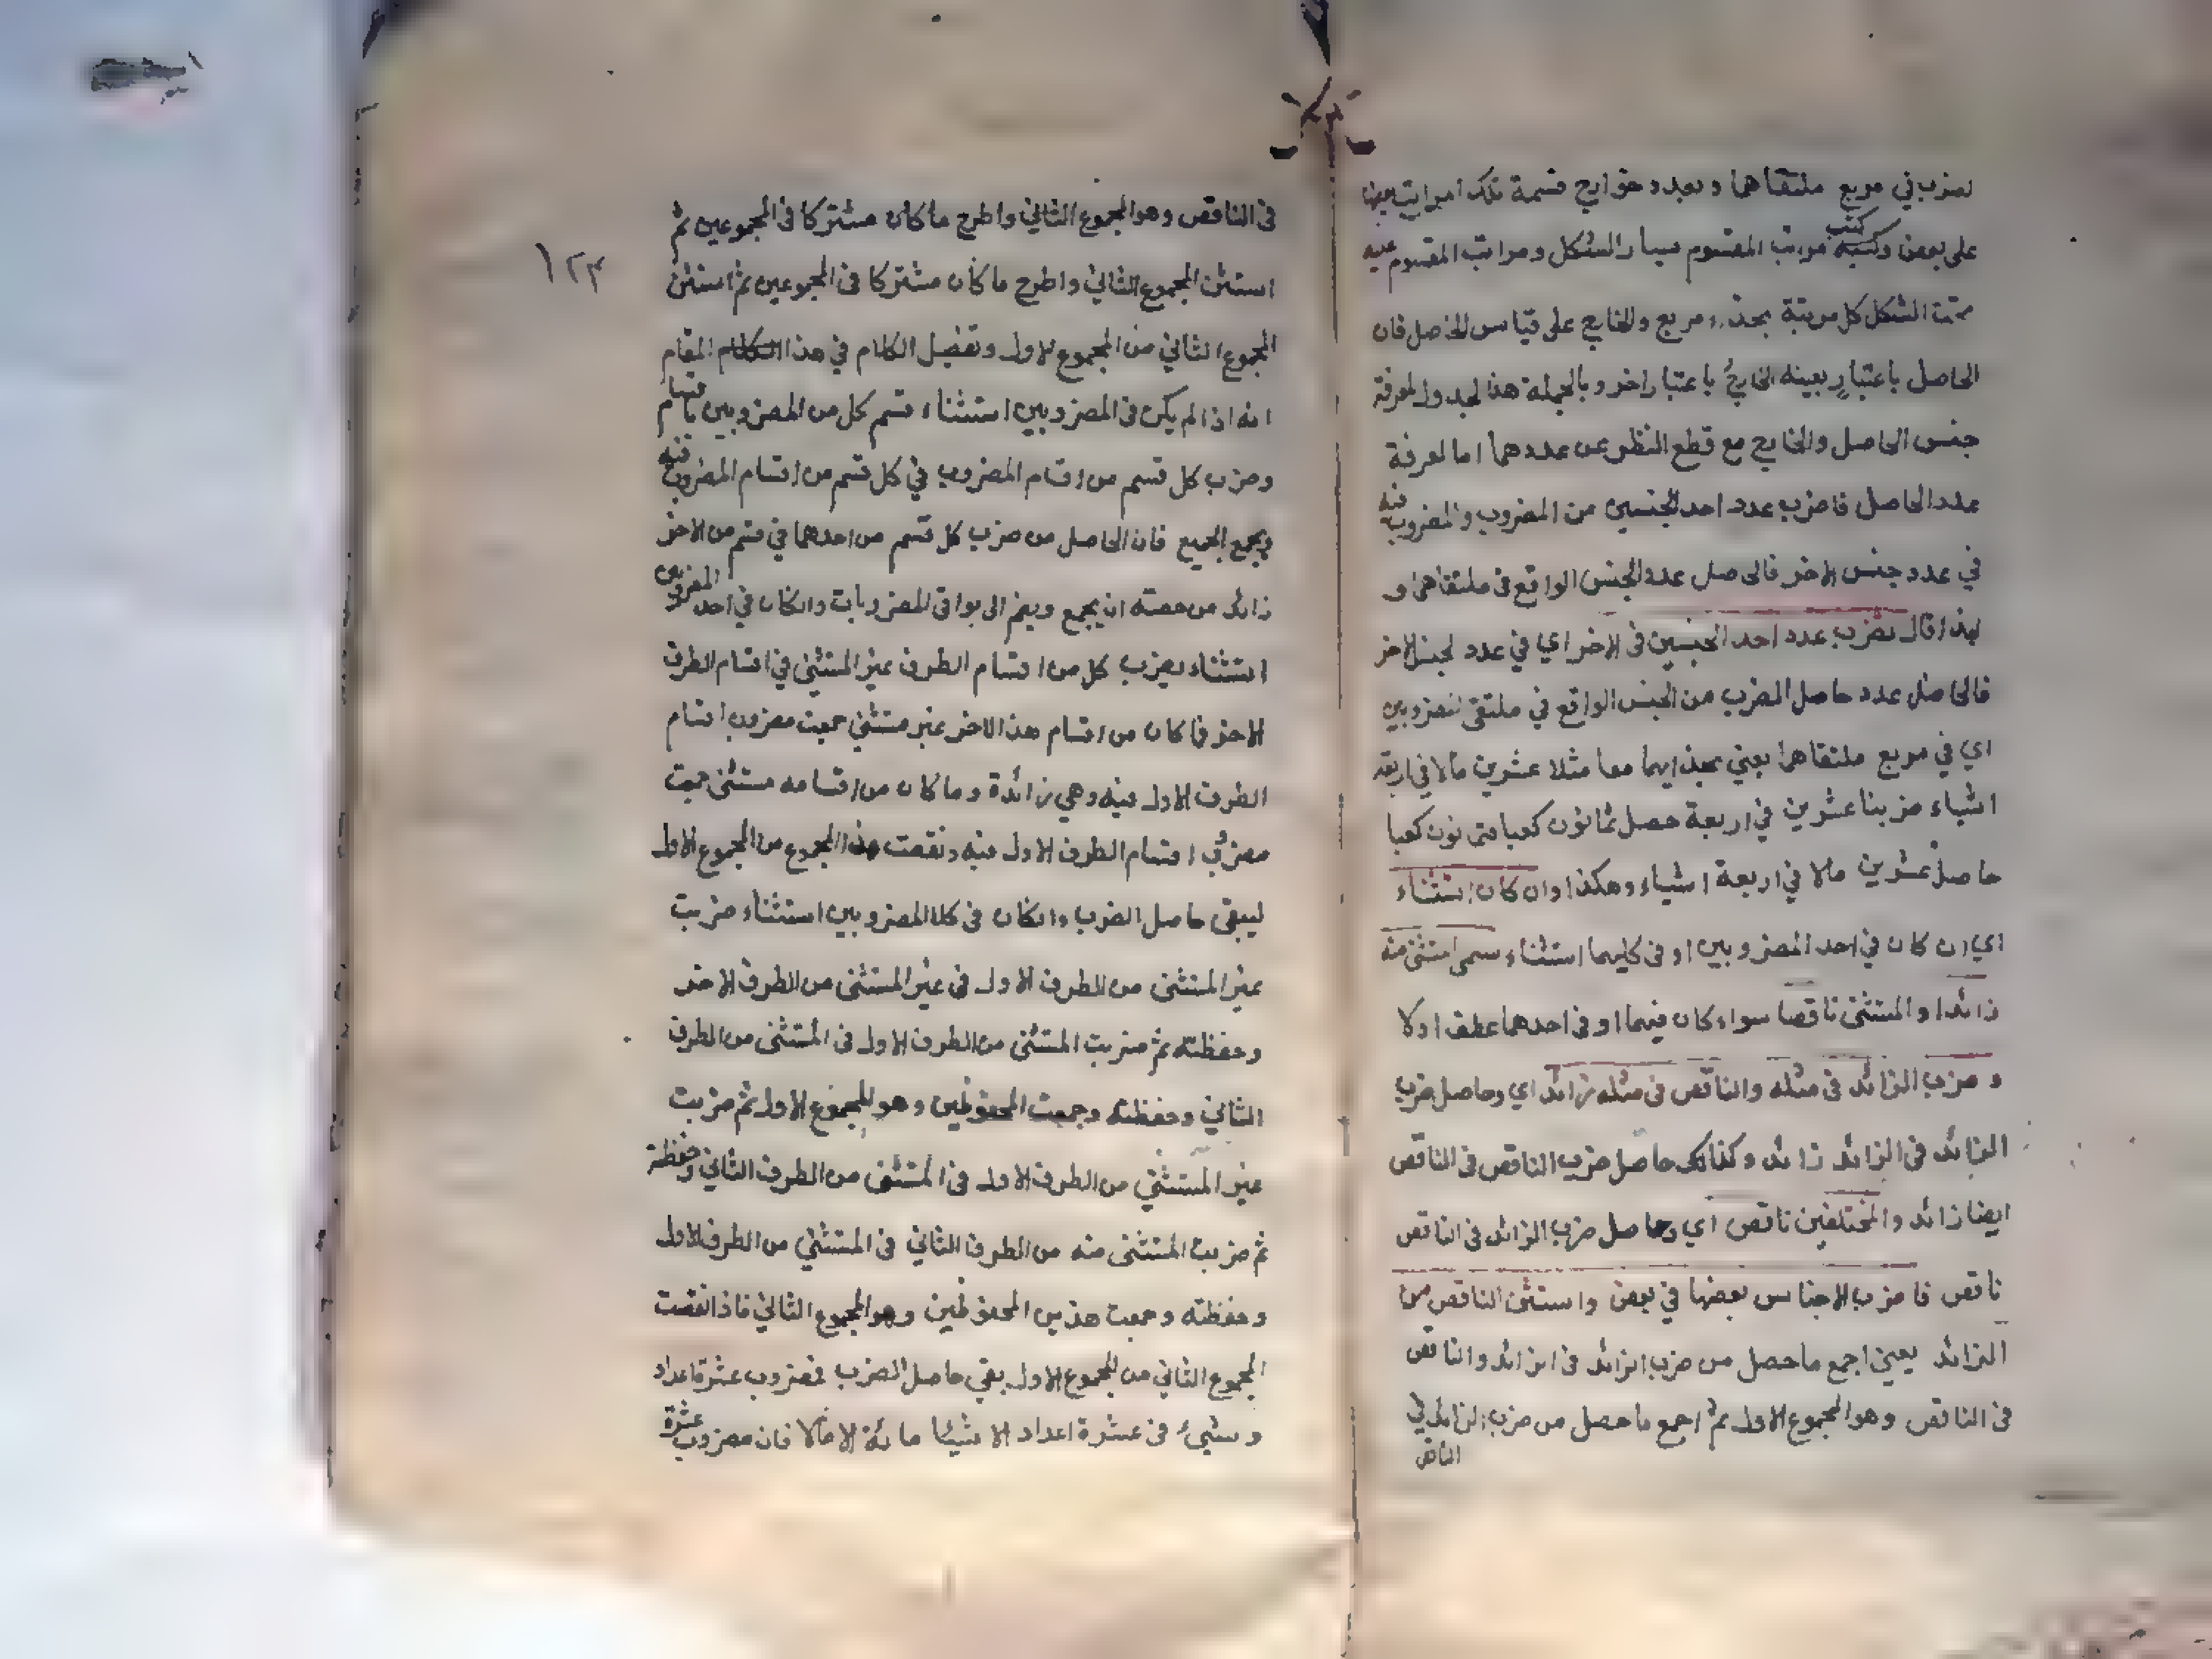 لضرب في مربع ملتقاهما وبعدد خوارج قسمة تلك المراتب بعضها
على بعض وكتبه كتب مراتب المقسوم يسار الشكل ومراتب المقسوم عليه
تحت الشكل كل مرتبة بحذاء مربع والخارج على قياس الحاصل فان
الحاصل باعتبار بعينه الخارج باعتبار اخر وبالجملة هذا الجدول لمعرفة
جنس الحاصل والخارج مع قطع النظر عن عددهما اما لمعرفة
عدد الحاصل فاضرب عدد احد الجنسين من المضروب والمضروب فيه
في عدد جنس الاخر فالحاصل عدد الجنس الواقع في ملتقاهما و
لهذا قال تضرب عدد احد الجنسين في الاخر اي في عدد الجنس الاخر
فالحاصل عدد حاصل الضرب من الجنس الواقع في ملتقى المضروبين
اي في مربع ملتقاهما يعني بحذائهما معا مثلا عشرين مالا في اربعة
اشياء ضربنا عشرين في اربعة حصل ثمانون كعبا فثمانون كعبا
حاصل عشرين مالا في اربعة اشياء وهكذا وان كان استثناء
اي ان كان في احد المضروبين او في كليهما استثناء سمي المستثنى منه
زائدا والمستثنى ناقصا سواء كان فيهما او في احدهما عطف اولا
و ضرب الزائد في مثله والناقص في مثله زائد اي وحاصل ضرب
الزائد في الزائد زائد وكذلك حاصل ضرب الناقص في الناقص
ايضا زائد والمختلفين ناقص اي وحاصل ضرب الزائد في الناقص
ناقص فاضرب الاجناس بعضها في بعض واستثن الناقص من
الزائد يعني اجمع ما حصل من ضرب الزائد في الزائد والناقص
في الناقص وهو المجموع الاول ثم اجمع ما حصل من ضرب الزائد في
الناقص
في الناقص وهو المجموع الثاني واطرح ما كان مشتركا في المجموعين ثم
استثن المجموع الثاني واطرح ما كان مشتركا في المجموعين ثم استثن
المجموع الثاني من المجموع الاول وتفصيل الكلام في هذا الكلام المقام
انه اذا لم يكن في المضروبين استثناء قسم كل من المضروبين باقسام
وضرب كل قسم من اقسام المضروب في كل قسم من اقسام المضروب فيه
ويجمع الجميع فان الحاصل من ضرب كل قسم من احدهما في قسم من الاخر
زائد من حصته ان يجمع ويضم الى بواقي المضروبات وان كان في احد المضروبين
استثناء يضرب كل من اقسام الطرف غير المستثنى في اقسام الطرف
الاخر فما كان من اقسام هذا الاخر غير مستثنى جمعت مضروب اقسام
الطرف الاول فيه وهي زائدة وما كان من اقسامه مستثنى جمعت
مضروب اقسام الطرف الاول فيه ونقصت هذا المجموع من المجموع الاول
ليبقى حاصل الضرب وان كان في كلا المضروبين استثناء ضربت
غير المستثنى من الطرف الاول في غير المستثنى من الطرف الاخر
وحفظته ثم ضربت المستثنى من الطرف الاول في المستثنى من الطرف
الثاني وحفظته وجمعت المحفوظين وهو المجموع الاول ثم ضربت
غير المستثنى من الطرف الاول في المستثنى من الطرف الثاني وحفظته
ثم ضربت المستثنى منه من الطرف الثاني في المستثنى من الطرف الاول
وحفظته وجمعت هذين المحفوظين وهو المجموع الثاني فاذا نقصت
المجموع الثاني من المجموع الاول بقي حاصل الضرب فمضروب عشرة اعداد
وشيء في عشرة اعداد الا شيئا مائة الا مالا فان مضروب عشرة
١٢٣